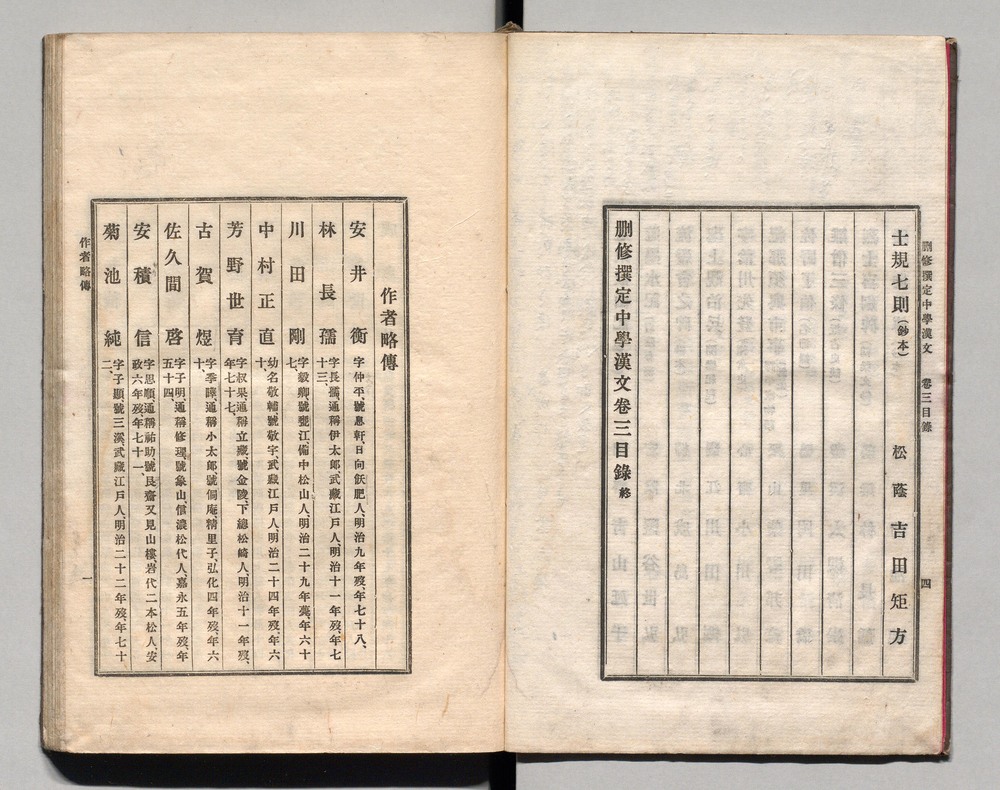 刪修撰定中學漢文　卷三目錄
四
士規七則(鈔本)　松蔭　吉田矩方
刪修撰定中學漢文卷三目錄終
作者略傳
安井衡　字仲平、號息軒、日向飫肥人、明治九年歿、年七十八、
林長孺　字長孺、通稱伊太郎、武藏江戶人、明治十一年歿、年七
十三、
川田剛　字毅卿、號甕江、備中松山人、明治二十九年薨、年六十
七、
中村正直　幼名敬輔、號敬宇、武藏江戶人、明治二十四年歿、年六
十、
芳野世育　字叔果、通稱立藏、號金陵、下總松崎人、明治十一年歿、
年七十七、
古賀煜　字季曄、通稱小太郎、號侗庵、精里子、弘化四年歿、年六
十、
佐久間啓　字子明、通稱修理、號象山、信濃松代人、嘉永五年歿、年
五十四、
安積信　字思順、通稱祐助、號艮齋、又見山樓、岩代二本松人、安
政六年歿、年七十一、
菊池純　字子顯、號三溪、武藏江戶人、明治二十二年歿、年七十
二、
作者略傳
一